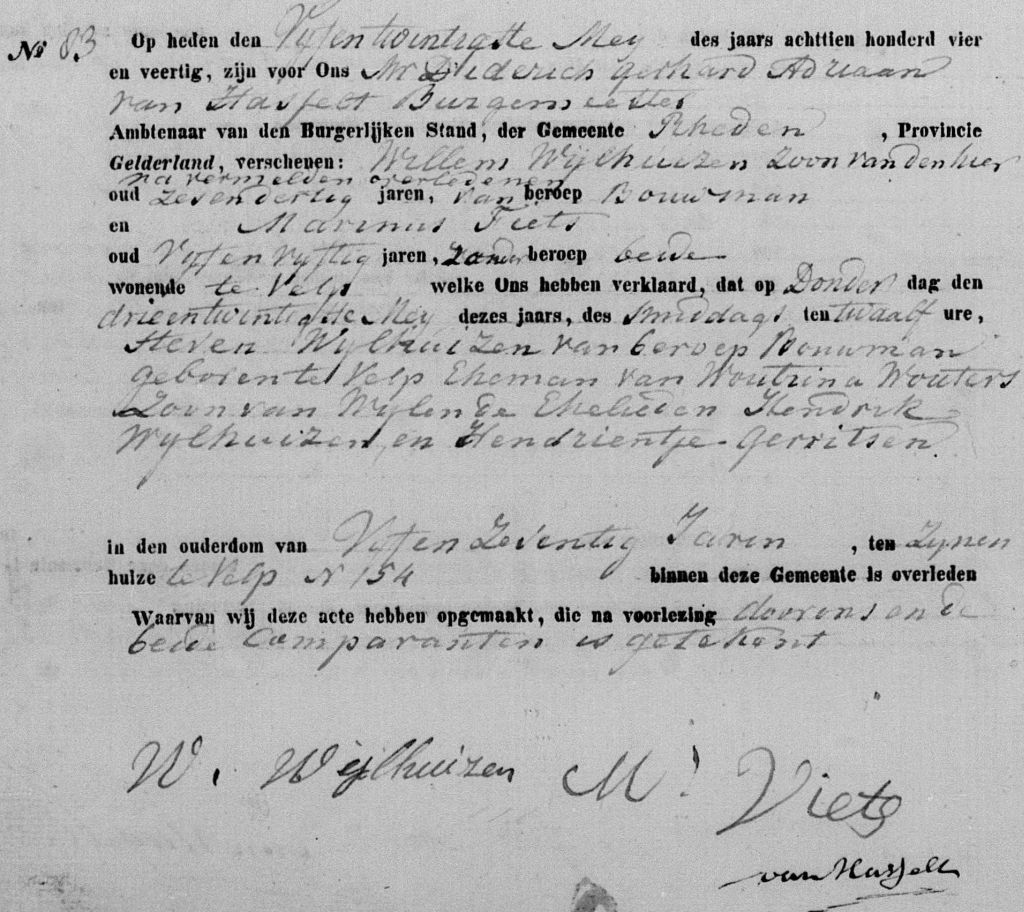 No 83 Op heden den Vyfentwintigste Mey des jaars achttien honderd vier
en veertig, zijn voor Ons Mr Diederich Gerhard Adriaan
van Hasselt Burgemeester
Ambtenaar van den Burgerlijken Stand, der Gemeente Rheden , Provincie
Gelderland, verschenen: Willem Wijlhuizen Zoon van den hier
na vermelden overledenen
oud Zevendertig jaren, van beroep Bouwman
en Marinus Fiets
oud Vyfenvyftig jaren, Zonder beroep beide
wonende te Velp welke Ons hebben verklaard, dat op Donder dag den
drieentwintigste Mey dezes jaars, des smiddags ten twaalf ure,
Steven Wylhuizen van beroep Bouwman
geboren te Velp Eheman van Woutrina Wouters
Zoon van Wylen de Ehelieden Hendrik
Wylhuizen, en Hendrientje Gerritsen.
in den ouderdom van Vyfen Zeventig Jaren , ten Zynen
huize te Velp N 154 binnen deze Gemeente is overleden
Waarvan wij deze acte hebben opgemaakt, die na voorlezing door ons en de
beide Comparanten is getekent
W. Wijlhuizen M! Viets
van Hasselt